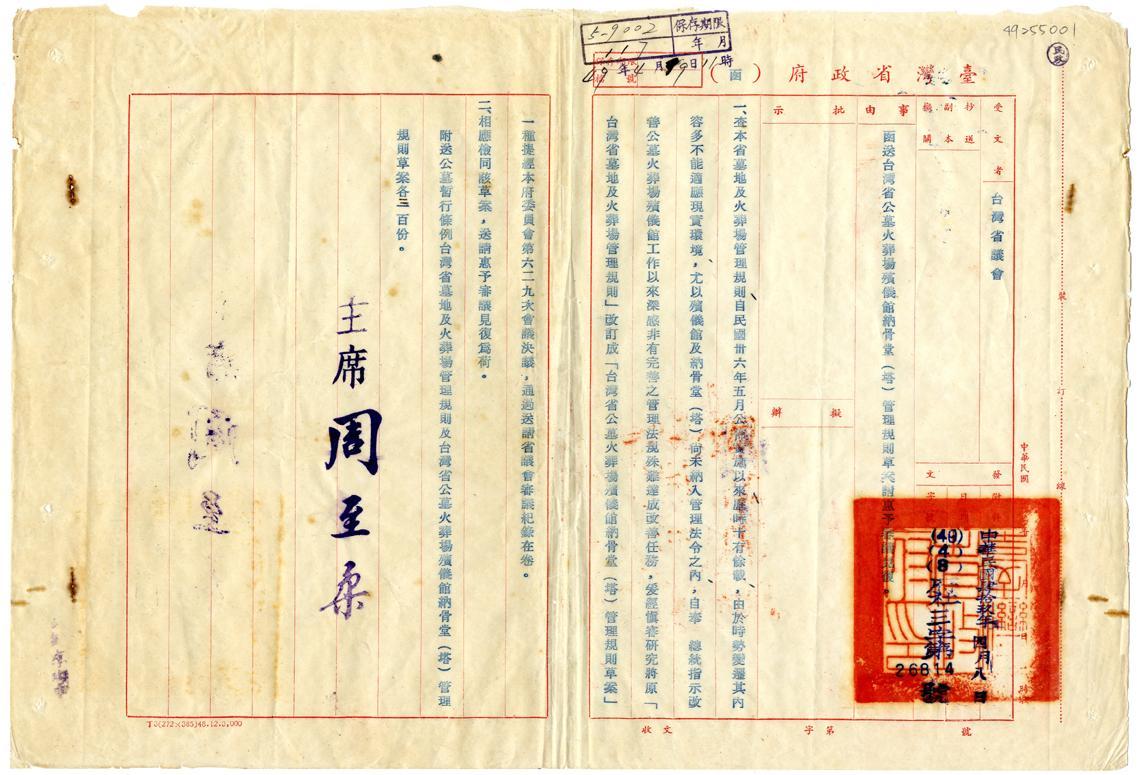 49255001
民政
5-9002
117
保存期限
年 月
49年4月9日11時
臺灣省政府（函）
受文者
台灣省議會
抄送
副本
機關
事由
批示
擬辦
函送台灣省公墓火葬場殯儀館納骨堂（塔）管理規則草案請惠予
中華民國
中華民國肆拾玖年四月八日
(49)
(4)
(8)
26814
號
一、查本省墓地及火葬場管理規則自民國卅六年五月公
以來歷時十有餘載，由於時勢變遷其內
容多不能適應現實環境，尤以殯儀館及納骨堂（塔）尚未納入管理法令之內，自奉　總統指示改
善公墓火葬場殯儀館工作以來深感非有完善之管理法規殊難達成改善任務，爰經慎審研究將原「
台灣省墓地及火葬場管理規則」改訂成「台灣省公墓火葬場殯儀館納骨堂（塔）管理規則草案」
一種提經本府委員會第六二九次會議決議，通過送請省議會審議紀錄在卷。
二、相應檢同該草案，送請惠予審議見復為荷。
附送公墓暫行條例台灣省墓地及火葬場管理規則及台灣省公墓火葬場殯儀館納骨堂（塔）管理
規則草案各三百份。
主席周至柔
裝
訂
線
收文
字第
號
T3(272×385)48.12.3,000